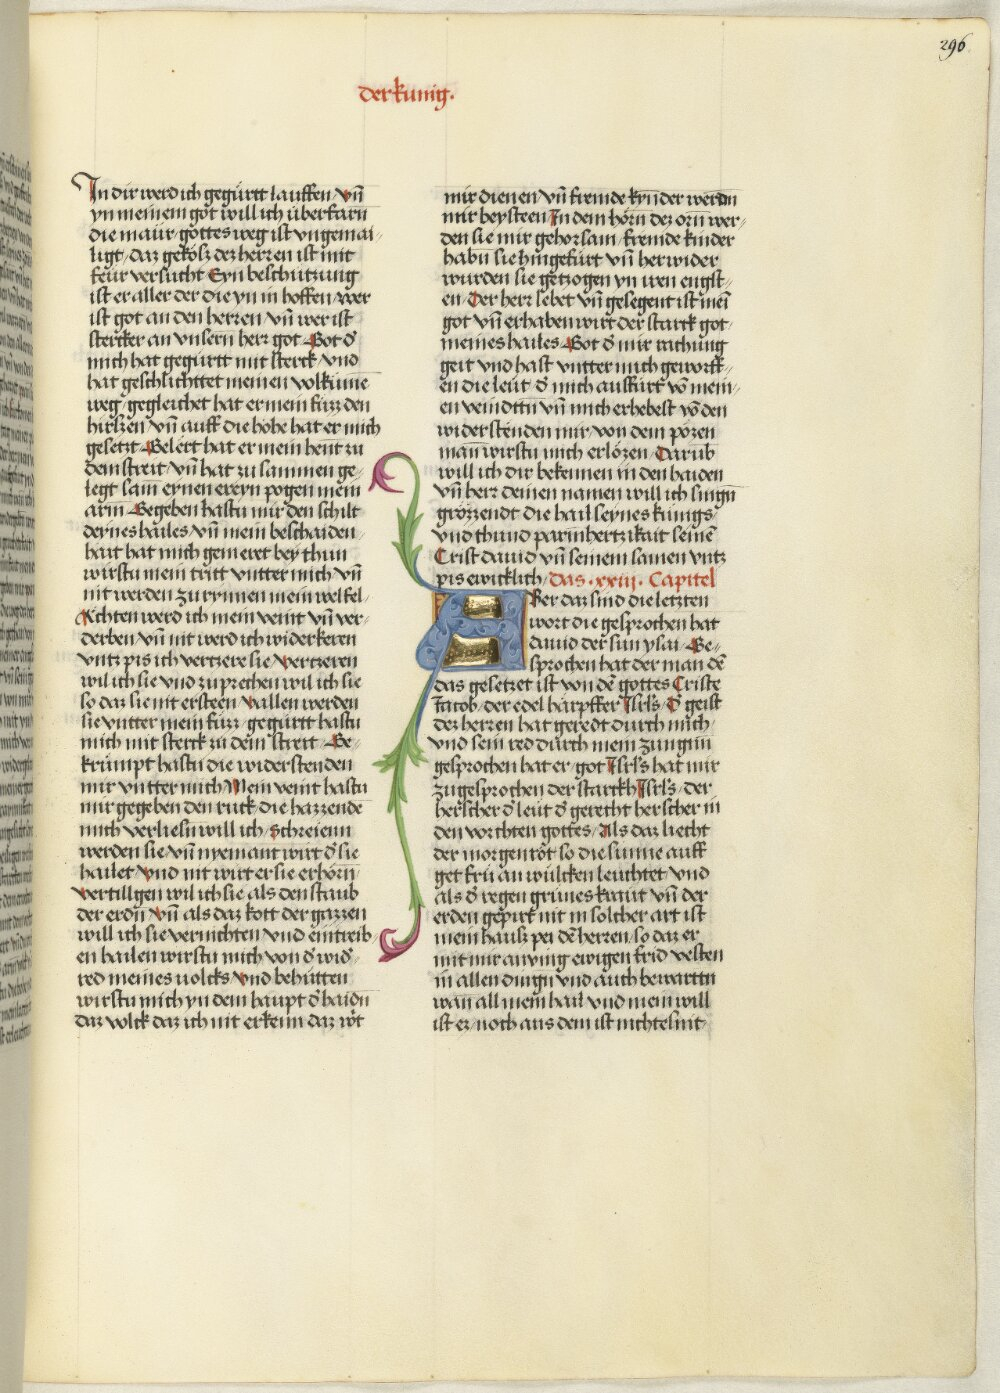 296
der kunig.
In dir werd ich gegürtt lauffen vñ
yn meinem got will ich überfarñ
die maür gottes weg ist vngemai
ligt daz gekösz dez herzen ist mit
feür versücht Eyn beschützung
ist er aller der die yn in hoffen wer
ist got an den herzen vñ wer ist
stercker an vnsern herz got Got d̄
mich hat gegürtt mit sterck vnd
hat geschlichttet meinen volkūmē
weg gegleichet hat er mein füzz den
hirszen vñ auff die höhe hat er mich
gesetzt Gelert hat er mein hent zu
dem streit vñ hat zu sammen ge
legt sam eynen ereyn pogen mein
arm Gegeben hastu mir den schilt
deynes hailes vñ mein beschaiden
hait hat mich gemeret bey thun
wirstu mein tritt vntter mich vñ
nit werden zu rynnen mein welkel
Achten werd ich mein veint vñ ver
derben vñ nit werd ich widerkeren
vntz pis ich vertzere sie vertzeren
wil ich sie vnd zuprechen wil ich sie
so daz sie nit ersteen vallen werden
sie vntter mein füzz gegürtt hastu
mich mit sterck zu dem streit Ge
krümpt hastu die widerstenden
mir vntter mich Mein veint hastu
mir gegeben den ruck die hazzende
mich verliesn will ich Schreienn
werden sie vñ nyemant wirt d̄ sie
hailet vnd nit wirt er sie erhörn
vertillgen wil ich sie als den staub
der erdñ vñ als daz kott der gazzen
will ich sie vernichten vnd eintreib
en hailen wirstu mich von d̄ wid
red meines uolcks vnd behütten
wirstu mich yn dem haupt d̄ haidñ
daz volck daz ich nit erkenn daz wt
mir dienen vñ fremde kynder werdn
mir beysteen In dem hörn dez orñ wer
den sie mir gehorsam fremde kinder
habñ sie hingefürt vñ herwider
wurden sie getzogen yn iren engst
en Der herr lebet vñ gesegent ist mei
got vñ erhaben wirt der starck got
meines hailes Got d̄ mir rachung
geit vnd hast vntter mich geworff
en die leüt d̄ mich auffürt vō mein
en veindttñ vñ mich erhebest vō den
widerstenden mir von dem pözen
man wirstu mich erlözen Darüb
will ich dir bekennen in den haiden
vñ herz deinen namen will ich singñ
grözzendt die hail seynes kunigs
vnd thund parmhertzikait seinē
Crist dauid vñ seinem samen vntz
pis ewicklich Das .xxiij. Capitel
Aber daz sind die letzten
wort die gesprochen hat
dauid der sun ysai Ge
sprochen hat der man dē
das gesetzet ist von dē gottes Criste
Jacob der edel harpffer Isrls D̄ geist
dez herzen hat geredt durch mich
vnd sein red durch mein zungñ
gesprochen hat er got Isrls hat mir
zugesprochen der starckh Isrls der
herscher d̄ leüt d̄ gerecht herscher in
den vorchten gottes Als daz liecht
der morgenröt so die sunne auff
get frü an wulcken leuchtet vnd
als d̄ regen grünes kraut vñ der
erden gepirt nit in solcher art ist
mein hausz pei dē herzen so daz er
mit mir anving ewigen frid vesten
in allen dingñ vnd auch bewarttñ
wan all mein hail vnd mein will
ist er noch aus dem ist nichtes nit